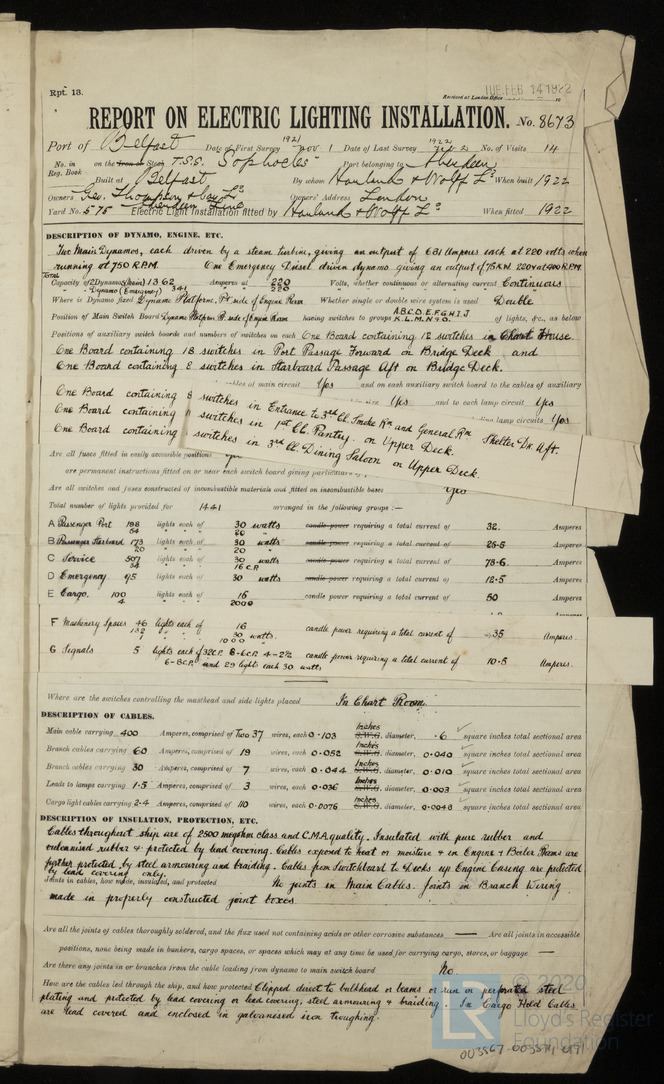 Rpt. 13.
TUE. FEB 14 1922
Received at London Office
REPORT ON ELECTRIC LIGHTING INSTALLATION. No. 8673
Port of Belfast Date of First Survey 1921 Nov 1 Date of Last Survey 1922 No. of Visits 14
No. in Reg. Book on the Iron or Steel T.S.S. Sophocles Port belonging to Aberdeen
Built at Belfast By whom Harland & Wolff Ld When built 1922
Owners Geo. Thompson & Coy Ld Owners' Address London
Aberdeen Line
Yard No. 575 Electric Light Installation fitted by Harland & Wolff Ld When fitted 1922
DESCRIPTION OF DYNAMO, ENGINE, ETC.
Two Main Dynamos, each driven by a steam turbine, giving an output of 681 Amperes each at 220 volts when
running at 750 R.P.M. One Emergency Diesel driven dynamo giving an output of 75 KW. 220V at 400 R.P.M.
TOTAL
Capacity of 2 Dynamos (Main) 1362 Amperes at 220 Volts, whether continuous or alternating current Continuous
" Dynamo (Emergency) 341 " " 220
Where is Dynamo fixed Dynamo Platform, Pt side of Engine Room Whether single or double wire system is used Double
Position of Main Switch Board Dynamo Platform P. side of Engine Room having switches to groups A.B.C.D.E.F.G.H.I.J. K.L.M.N.O. of lights, &c., as below
Positions of auxiliary switch boards and numbers of switches on each One Board containing 12 switches in Chart House.
One Board containing 18 switches in Port Passage Forward on Bridge Deck, and
One Board containing 8 switches in Starboard Passage Aft on Bridge Deck.
cables of main circuit Yes and on each auxiliary switch board to the cables of auxiliary
Yes and to each lamp circuit Yes
lamp circuits Yes
One Board containing 8 switches in Entrance to 3rd Cl. Smoke Rm and General Rm Shelter Dk Aft.
One Board containing switches in 1st Cl. Pantry. on Upper Deck.
One Board containing switches in 3rd Cl. Dining Saloon on Upper Deck.
Are all fuses fitted in easily accessible positions
are permanent instructions fitted on or near each switch board giving particulars
Are all switches and fuses constructed of incombustible materials and fitted on incombustible bases Yes
Total number of lights provided for 1441 arranged in the following groups :—
A Passenger Port 198 lights each of 30 watts candle power requiring a total current of 32. Amperes
64 " " 20 "
B Passenger Starboard 173 lights each of 30 watts candle power requiring a total current of 25·5 Amperes
20 " " 20 "
C Service 507 lights each of 30 watts candle power requiring a total current of 78·6. Amperes
34 " " 16 C.P.
D Emergency 95 lights each of 30 watts candle power requiring a total current of 12·5 Amperes
E Cargo. 100 lights each of 16 candle power requiring a total current of 50 Amperes
4 2000
F Machinery Spaces 46 lights each of 16 candle power requiring a total current of 35 Amperes.
132 " " 30 watts.
1000
G Signals 5 lights each of 32 C.P. 8-6 C.P. 4-2½ candle power requiring a total current of 10·5 Amperes.
6-8 C.P. and 29 lights each 30 watts
Where are the switches controlling the masthead and side lights placed In Chart Room.
DESCRIPTION OF CABLES.
Main cable carrying 400 Amperes, comprised of Two 37 wires, each 0·103 Inches S.W.G. diameter, ·6 square inches total sectional area
Branch cables carrying 60 Amperes, comprised of 19 wires, each 0·052 Inches S.W.G. diameter, 0·040 square inches total sectional area
Branch cables carrying 30 Amperes, comprised of 7 wires, each 0·044 Inches S.W.G. diameter, 0·010 square inches total sectional area
Leads to lamps carrying 1·5 Amperes, comprised of 3 wires, each 0·036 Inches S.W.G. diameter, 0·003 square inches total sectional area
Cargo light cables carrying 2·4 Amperes, comprised of 110 wires, each 0·0076 Inches S.W.G. diameter, 0·0048 square inches total sectional area
DESCRIPTION OF INSULATION, PROTECTION, ETC.
Cables throughout ship are of 2500 megohm class and C.M.A. quality. Insulated with pure rubber and
vulcanised rubber & protected by lead covering. Cables exposed to heat or moisture & in Engine & Boiler Rooms are
further protected by steel armouring and braiding. Cables from Switchboard to Decks up Engine Casing are protected
by lead covering only.
Joints in cables, how made, insulated, and protected No joints in Main Cables. Joints in Branch Wiring
made in properly constructed joint boxes
Are all the joints of cables thoroughly soldered, and the flux used not containing acids or other corrosive substances — Are all joints in accessible
positions, none being made in bunkers, cargo spaces, or spaces which may at any time be used for carrying cargo, stores, or baggage —
Are there any joints in or branches from the cable leading from dynamo to main switch board No.
How are the cables led through the ship, and how protected Clipped direct to bulkhead or beams or run on perforated steel
plating and protected by lead covering or lead covering, steel armouring & braiding. In Cargo Hold Cables
are lead covered and enclosed in galvanised iron troughing.
© 2020
Lloyd's Register
Foundation
LR